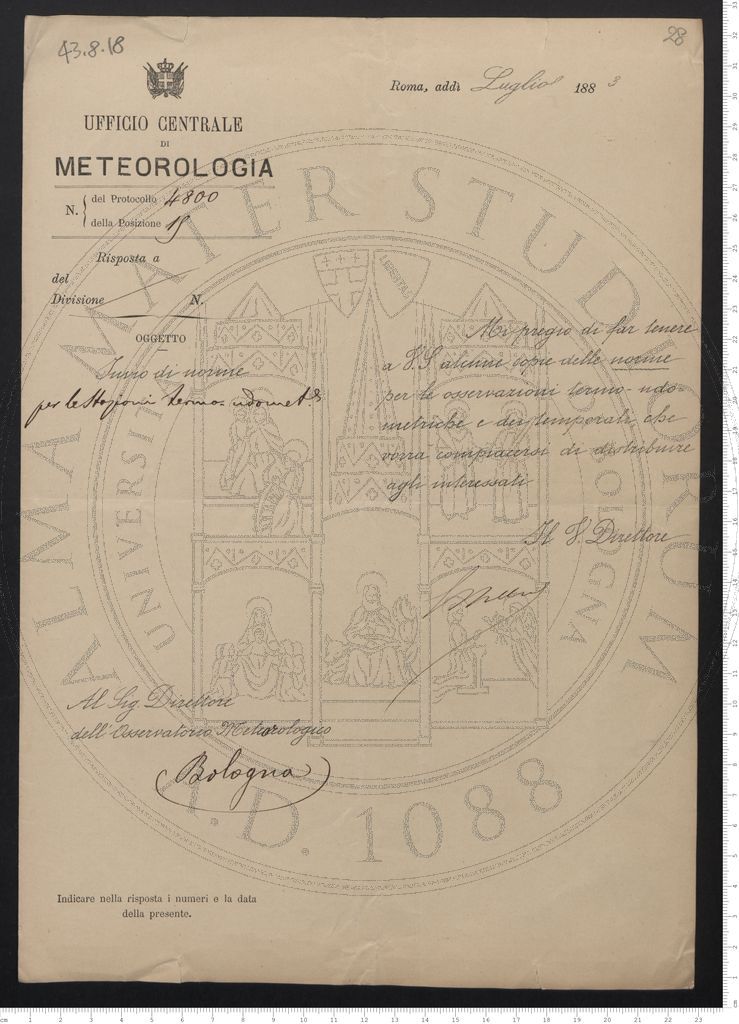 43.8.18
28
Roma, addì Luglio 1883
UFFICIO CENTRALE
DI
METEOROLOGIA
N. { del Protocollo 4800
della Posizione 15
Risposta a
del
Divisione N.
OGGETTO
Invio di norme
per le Stazioni termo-udomet.
Mi pregio di far tenere
a V.S. alcune copie delle norme
per le osservazioni termo-udo-
metriche e dei temporali, che
vorrà compiacersi di distribuire
agli interessati.
Il V. Direttore
Al Sig. Direttore
dell'Osservatorio Meteorologico
Bologna
Indicare nella risposta i numeri e la data
della presente.
ALMA MATER STUDIORUM
UNIVERSITÀ BOLOGNA
A.D. 1088